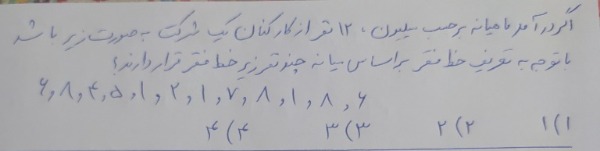 اگر درآمد ماهیانه برحسب میلیون، ۱۲ نفر از کارکنان یک شرکت به صورت زیر باشد
با توجه به تعریف خط فقر براساس میانه چند نفر زیر خط فقر قرار دارند؟
۶, ۸, ۴, ۵, ۱, ۲, ۱, ۷, ۸, ۱, ۸, ۶
۱) ۱ ۲) ۲ ۳) ۳ ۴) ۴